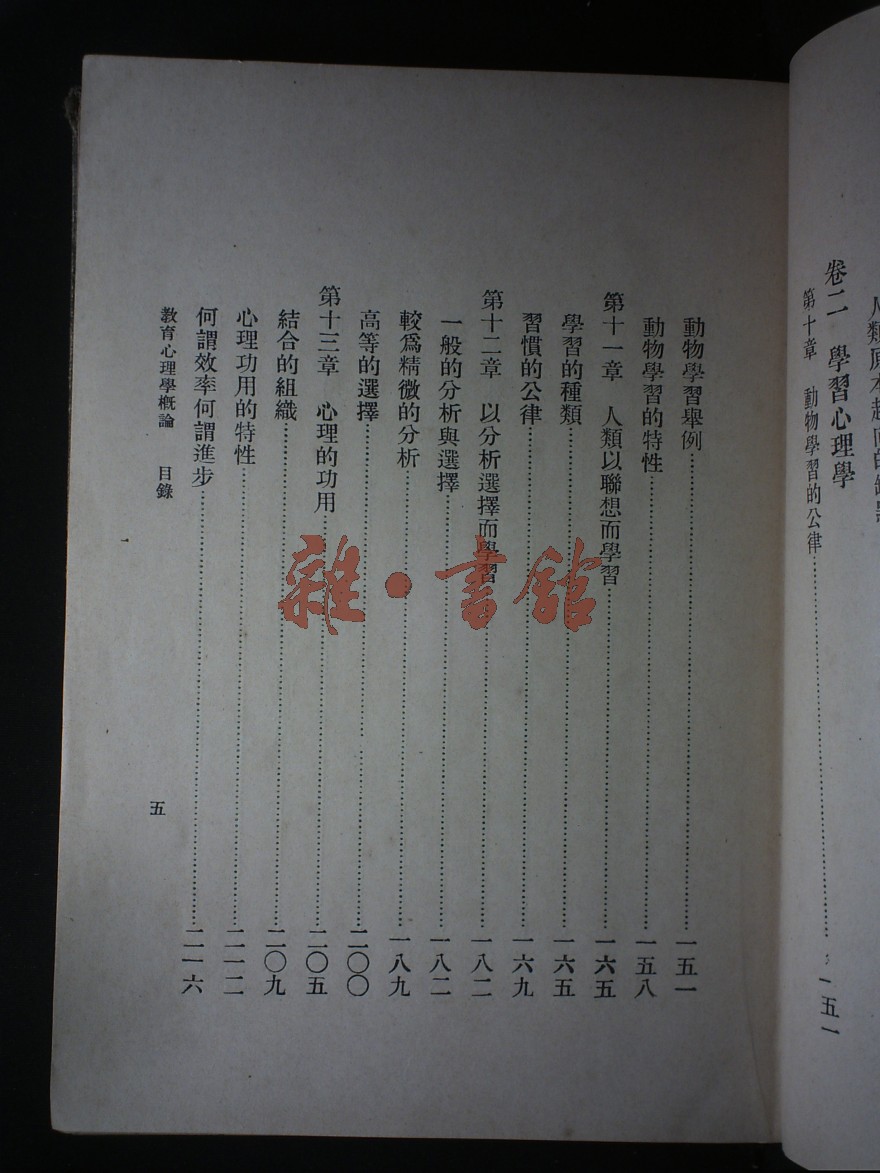 卷二　學習心理學
第十章　動物學習的公律……一五一
動物學習舉例……一五一
動物學習的特性……一五八
第十一章　人類以聯想而學習……一六五
學習的種類……一六五
習慣的公律……一六九
第十二章　以分析選擇而學習……一八二
一般的分析與選擇……一八二
較爲精微的分析……一八九
高等的選擇……二〇〇
第十三章　心理的功用……二〇五
結合的組織……二〇九
心理功用的特性……二一二
何謂效率何謂進步……二一六
教育心理學概論　目錄
五
雜·書館